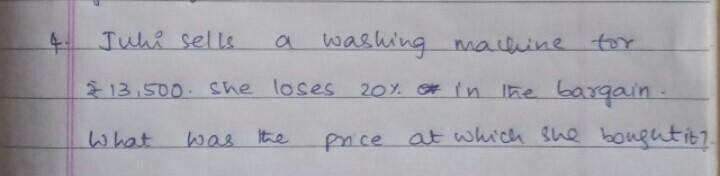 4. Juhi sells a washing machine for
₹13,500. She loses 20% in the bargain.
What was the price at which she bought it?